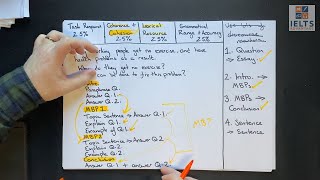 Task Response
2.5%
Coherence +
Cohesion
2.5%
Lexical
Resource
2.5%
Grammatical
Range + Accuracy
2.5%
IELTS
they get no exercise, and have
health problems as a result.
they get no exercise?
can be done to fix this problem?
Paraphrase Q.
Answer Q.1
Answer Q.2
MBP1
Topic Sentence → Answer Q.1
Explain Q.1
Example of Q.1
MBP2
Topic Sentence → Answer Q.2
Explain Q.2
Example Q.2
Conclusion
Answer Q.1 + answer Q.2
MBP
1. Question →
Essay
2. Intro. →
MBPs
3. MBPs →
Conclusion
4. Sentence →
Sentence